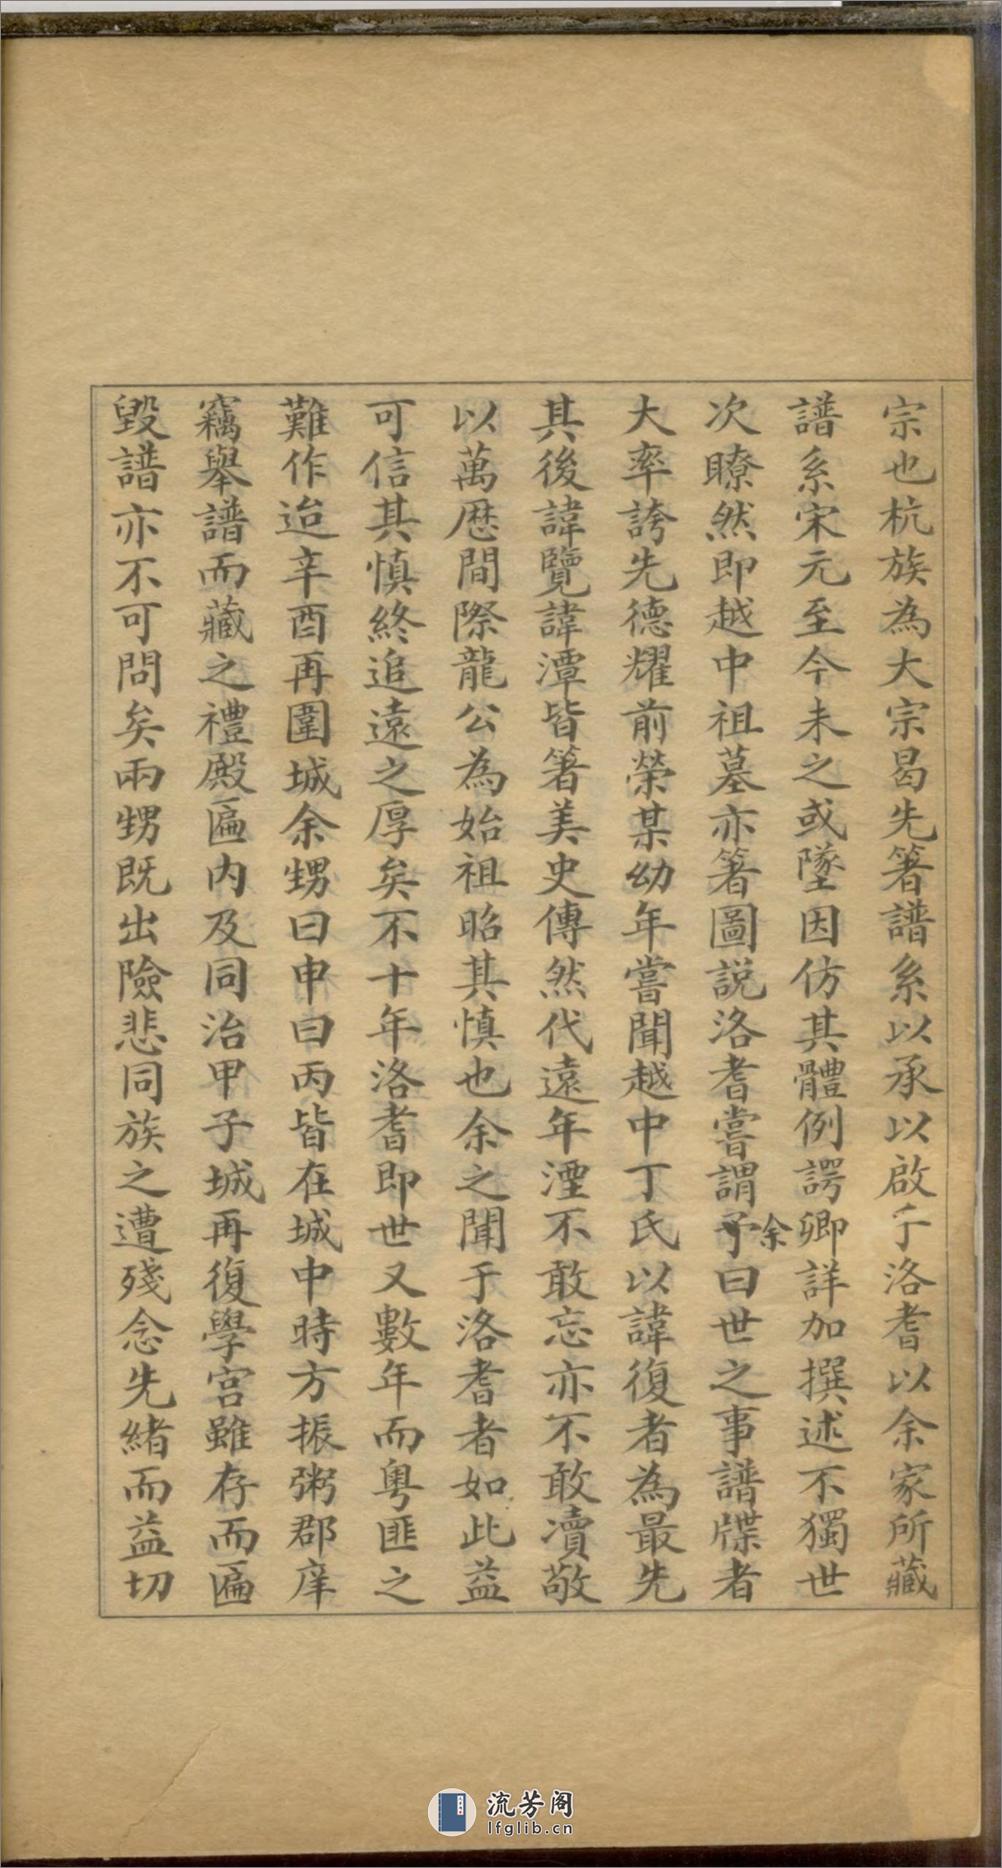 宗也杭族為大宗曷先箸譜系以承以啟于洛耆以余家所藏
譜系宋元至今未之或墜因仿其體例諤卿詳加撰述不獨世
次瞭然即越中祖墓亦箸圖說洛耆嘗謂予余曰世之事譜牒者
大率誇先德耀前榮某幼年嘗聞越中丁氏以諱復者為最先
其後諱覽諱潭皆箸美史傳然代遠年湮不敢忘亦不敢瀆敬
以萬厯間際龍公為始祖昭其慎也余之聞于洛耆者如此益
可信其慎終追遠之厚矣不十年洛耆即世又數年而粵匪之
難作迨辛酉再圍城余甥曰申曰丙皆在城中時方振粥郡庠
竊舉譜而藏之禮殿匾內及同治甲子城再復學宮雖存而匾
毀譜亦不可問矣兩甥既出險悲同族之遭殘念先緒而益切
流芳阁
lfglib.cn